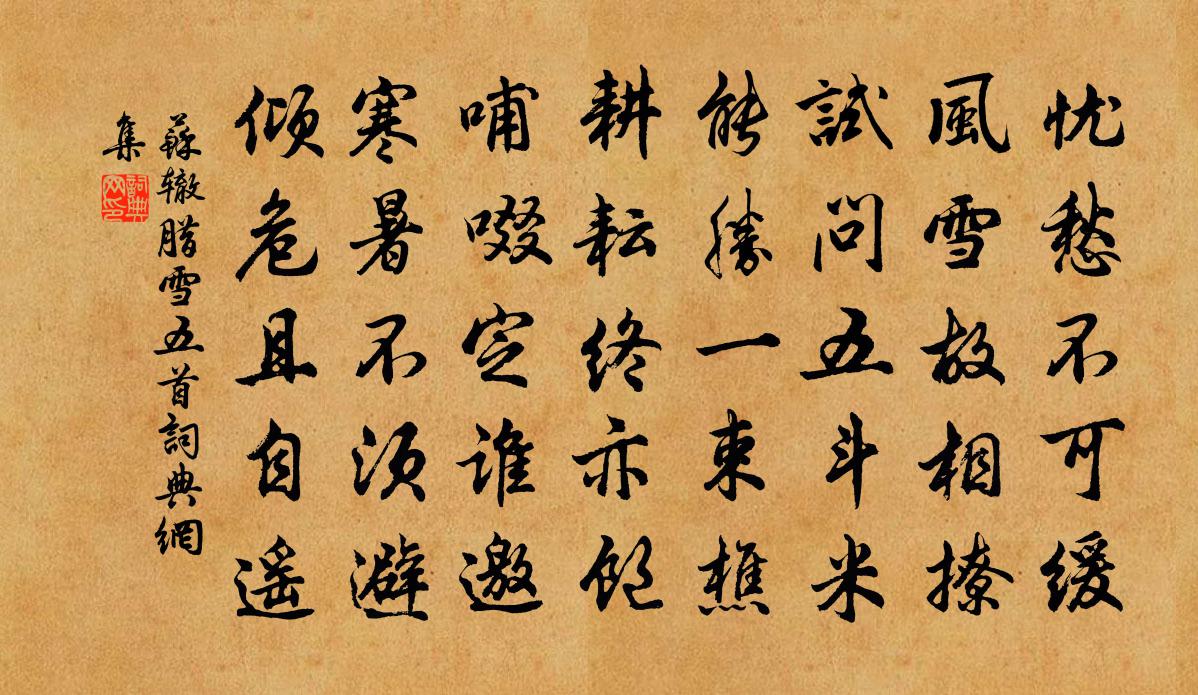 忧愁不可缓
風雪故相撩
試問五斗米
能勝一束樵
耕耘终亦飽
哺啜定谁邀
寒暑不须避
倾危且自遥
蘇辙腊雪五首詞典網
集
詞典
网印